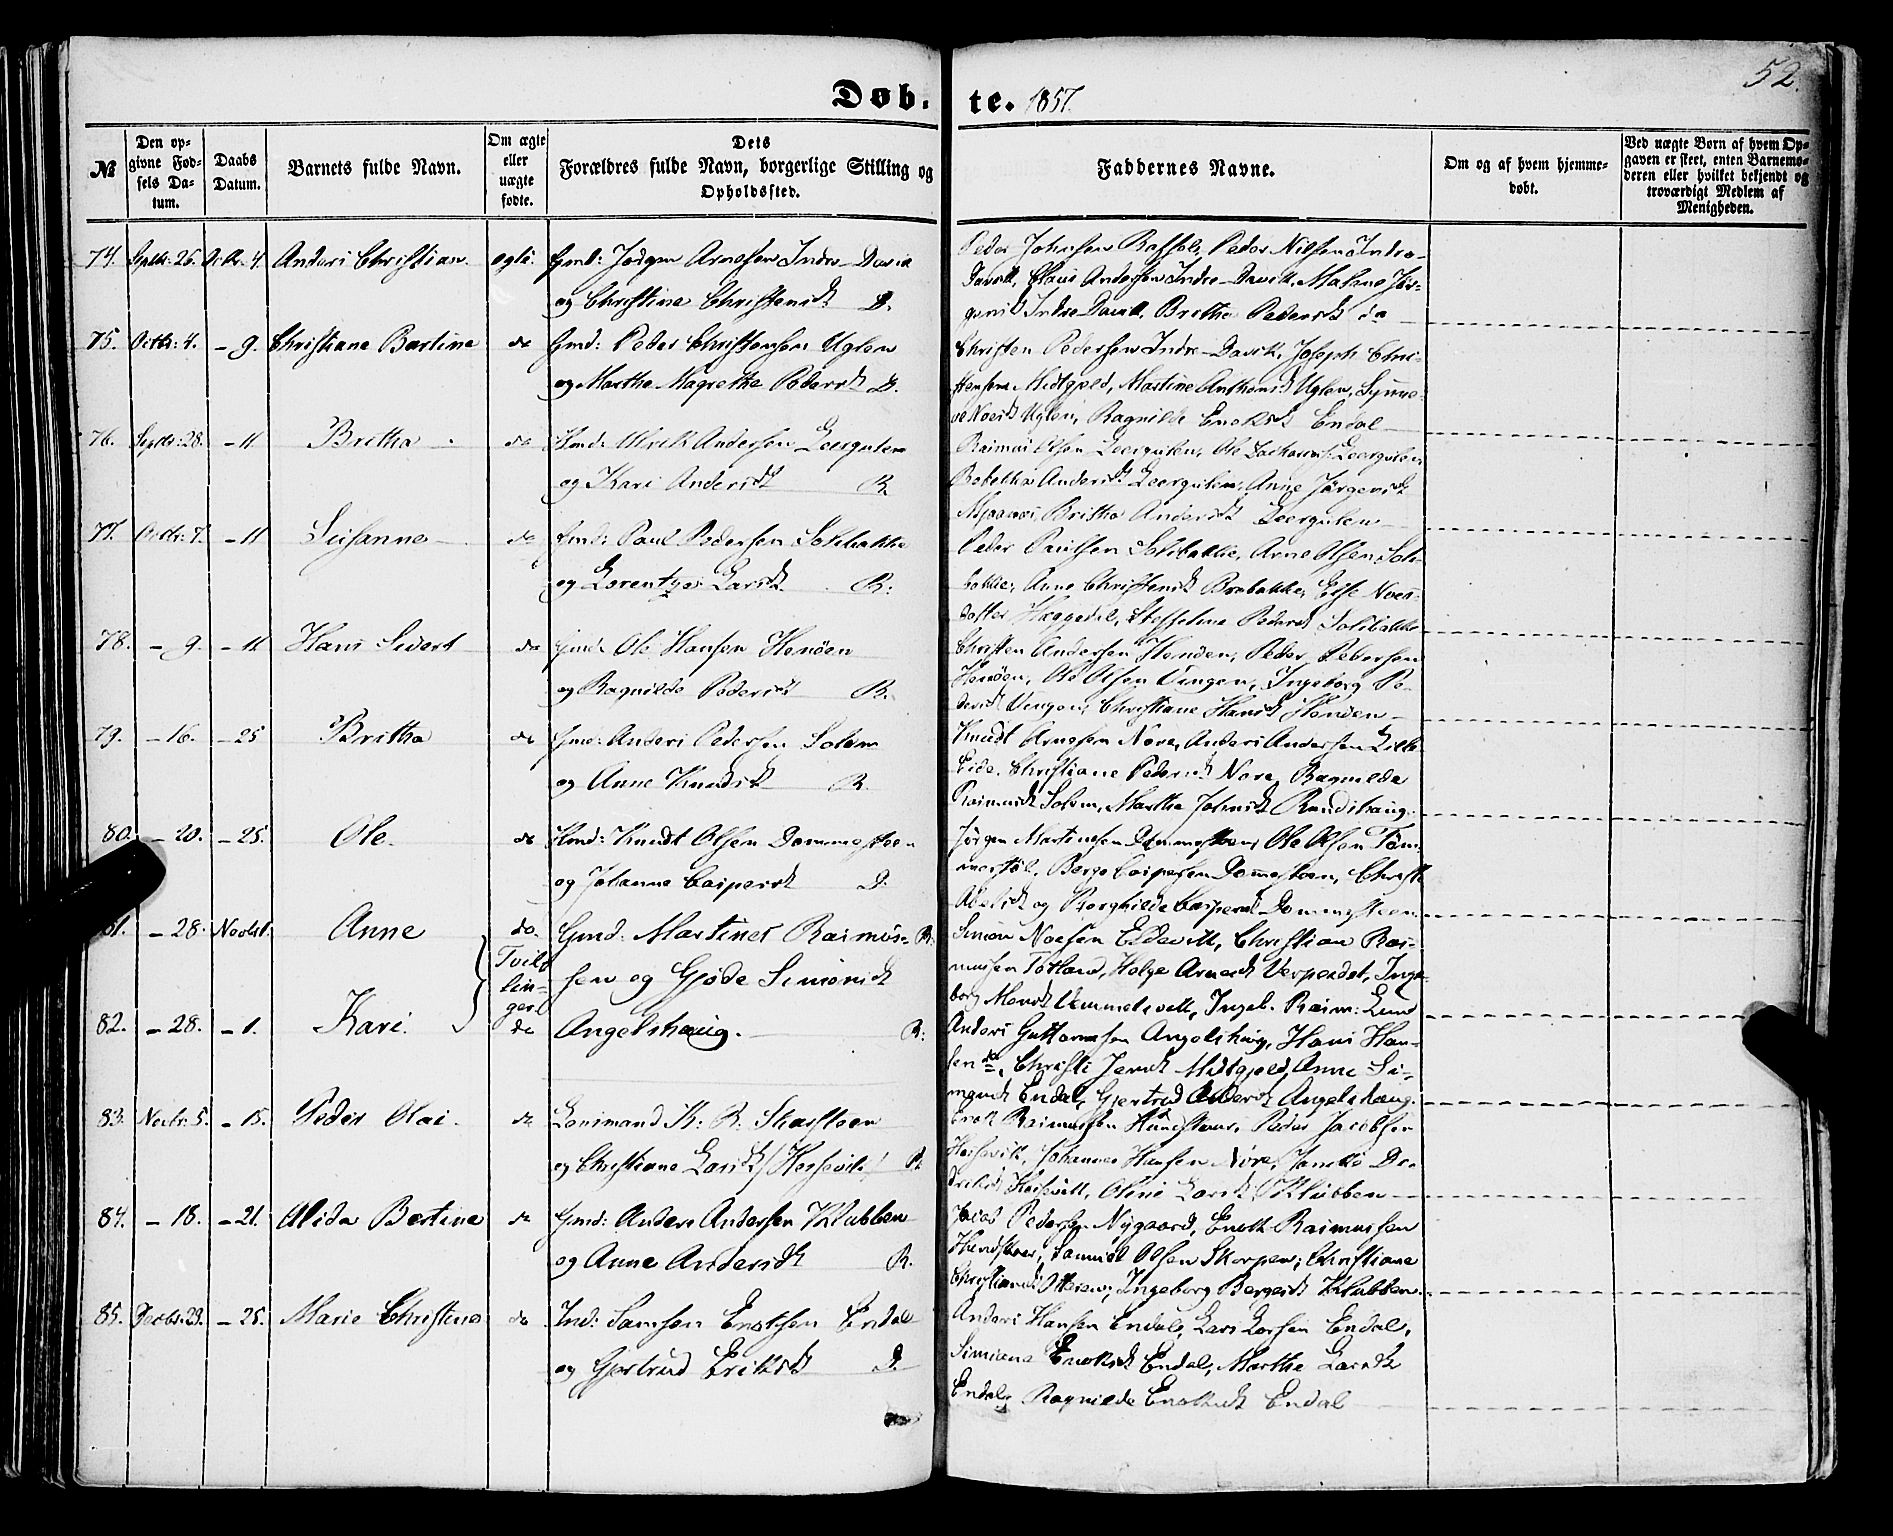 52.
Døb- te. 1857.
№
Den opgivne Fødsels Datum.
Daabs Datum.
Barnets fulde Navn.
Om ægte eller uægte fødte.
Dets Forældres fulde Navn, borgerlige Stilling og Opholdssted.
Faddernes Navne.
Om og af hvem hjemmedøbt.
Ved uægte Børn af hvem Opgaven er skeet, enten Barnemoderen eller hvilket bekjendt og troværdigt Medlem af Menigheden.
74. Septbr: 26. Octbr. 4. Anders Christian. ægte. Gmd: Jørgen Arnesen Indre-Davik
og Christine Christensdt D.
Peder Johnsen Peder Nilsen Indre-
Davik, Claus Andersen Indre-Davik, Malene Jør-
gensdt Indre Davik, Brithe Pedersdt do
75. Octbr: 4. - 9. Christiane Bertine do Gmd: Peder Christensen Uglen
og Marthe Magrethe Pedersdt D.
Christen Pedersen Indre-Davik, Joseph Chri-
stensen Midtgjeld, Martine Anthonsdt Uglen, Synne-
ve Noesdt Uglen, Ragnilde Enoksdt Endal
76. Septbr: 28. - 11 Britha do Ulrik Andersen Leergulen
og Kari Andersdt R.
Rasmus Olsen Leergulen, Ole Leergulen,
Andersdt Leergulen, Anne Jørgensdt
Britha Andersdt Leergulen
77. Octbr: 7. - 11 Susanne do Gmd: Paul Pedersen Solibakke
og Larsdt R.
Peder Paulsen Solibakke, Arne Olsen Soli-
bakke, Anne Christensdt Else Noes-
datter Pedersdt Solibakke
78. - 9. - 11 Hans Sivert do Gmd: Ole Hansen Henøen
og Ragnilde Pedersdt R.
Christen Andersen Henøen, Peder Pedersen
Henøen, Ole Olsen Vingen, Ingeborg Pe-
dersdt Vingen, Christiane Hansdt Henøen
79. - 16. - 25 Britha do Gmd: Anders Pedersen Solem
og Anne Knudsdt R.
Knudt Arnesen Nore, Anders Andersen Lille-
Eide, Christiane Pedersdt Nore, Ragnilde
Rasmusdt Solem, Marthe Johnsdt Rundehaug.
80. - 20. - 25. Ole. do Hmd: Knudt Olsen Dommesteen
og Johanne Caspersdt D.
Jørgen Martinusen Dommesteen, Ole Olsen Tøm-
Berge Caspersen Dommesteen, Christi
Abelsdt og Borghilde Caspersdt Dommesteen
81. - 28. Novbr 1. Anne do. Gmd: Martines Rasmus- R.
Tvillinger
sen og Gjøde Simonsdt
Simon Noesen Christian Ras-
mussen Totland, Helge Arnesdt Verpeidet, Inge-
borg Monsdt Vemmelsvik, Ingeb. Rasm:
82. - 28. - 1. Kari. do Angelshaug. R:
Anders Guttormsen Angelshaug, Hans Han-
sen do, Christi Jensdt Midtgjeld, Anne Si-
monsdt Endal, Gjertrud Andersdt Angelshaug.
83. Novbr. 5. - 15. Peder Olai. do Lovimand K: R: Skarsteen
og Christiane Larsdt / Hessevik / R
Enok Rasmussen Hundskaar, Peder Jacobsen
Hessevik, Johannes Hansen Nore, Janikke Di-
driksdt Hessevik, Oline Larsdt Klubben
84. - 18. - 21. Alida Bertine do Gmd: Anders Andersen Klubben
og Anne Andersdt R.
Jacob Pedersen Nygaard, Enok Rasmussen
Hundskaar, Samuel Olsen Skorpen, Christiane
Christiansdt Otteren, Ingeborg Bergesdt Klubben.
85. - 25. Marie Christine do Ind: Samson Enoksen Endal
og Gjertrud Eriksdt D.
Anders Hansen Endal, Lars Larsen Endal,
Simiane Enoksdt Endal, Marthe Larsdt
Endal, Ragnilde Enoksdt Endal